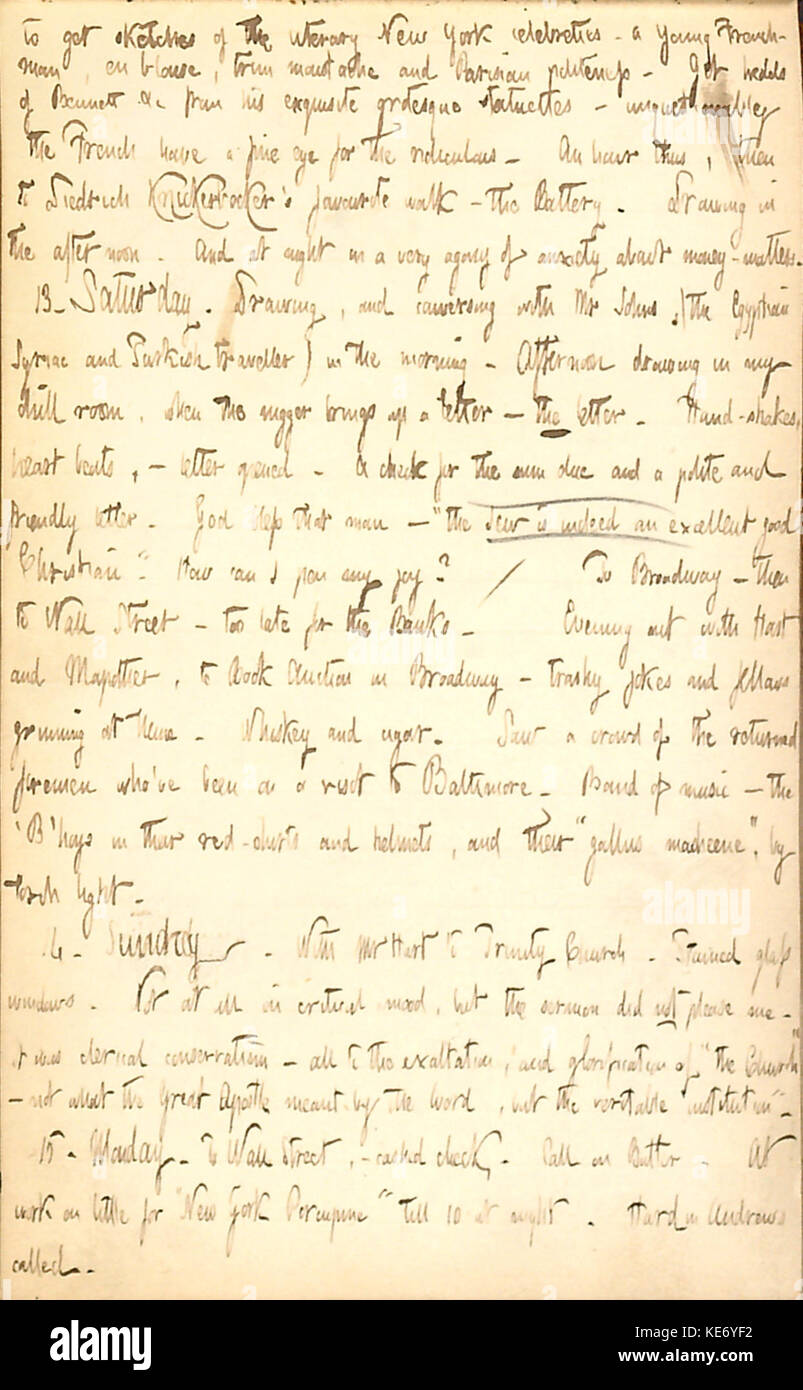 to get sketches of the literary New York celebreties - a Young French-
man, en blouse, trim moustache and Parisian politeness - Got heads
of Bennett &c from his exquisite grotesque statuettes - unquestionably
the French have a fine eye for the ridiculous - An hour thus, then
to Diedrich Knickerbocker's favourite walk - the Battery. Drawing in
the afternoon. And at night in a very agony of anxiety about money-matters.
13 - Saturday. Drawing, and conversing with Mr Johns, (the Egyptian
Syriac and Turkish traveller) in the morning - Afternoon drawing in my
chill room, when the nigger brings up a letter - the letter. Hand-shakes,
heart beats, - letter opened - A check for the sum due and a polite and
friendly letter. God bless that man - "the Jew is indeed an excellent good
Christian" How can I pen my joy? / To Broadway - then
to Wall Street - too late for the Banks - Evening out with Hart
and Mapother, to Book Auction in Broadway - trashy jokes and fellows
grinning at them - Whiskey and cigar. Saw a crowd of the returned
firemen who've been on a visit to Baltimore - Band of music - the
'B'hoys in their red-shirts and helmets, and their "gallus macheene", by
torch light -
14 - Sunday - With Mr Hart to Trinity Church - Stained glass
windows. Not at all in critical mood, but the sermon did not please me -
it was clerical conservatism - all to the exaltation, and glorification of "the Church"
- not what the Great Apostle meant by the word, but the veritable "institution" -
15 - Monday - To Wall Street, - cashed check, - Call on Butler - At
work on title for "New York Porcupine" till 10 at night. Hardin Andrews
called -
alamy
alamy
Image ID: KE6YF2
www.alamy.com
KE6YF2